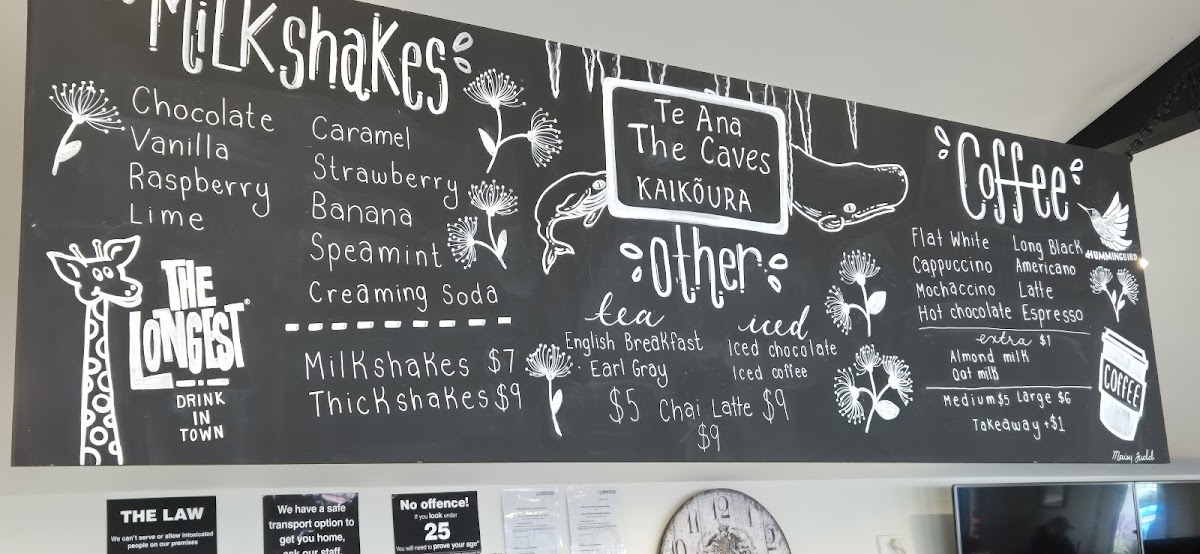 Milkshakes
Chocolate
Vanilla
Raspberry
Lime
Caramel
Strawberry
Banana
Speamint
Creaming Soda
Milkshakes $7
Thickshakes $9
THE
LONGEST
DRINK
IN
TOWN
Te Ana
The Caves
KAIKŌURA
other
tea
English Breakfast
Earl Gray
$5
iced
Iced chocolate
Iced coffee
$9
Chai Latte
$9
Coffee
Flat White Long Black
Cappuccino Americano
Mochaccino Latte
Hot chocolate Espresso
extra $1
Almond milk
Oat milk
Medium $5 Large $6
Takeaway +$1
HUMMINGBIRD
COFFEE
Maisy Judd
THE LAW
We can't serve or allow intoxicated
people on our premises
We have a safe
transport option to
get you home,
ask our staff.
No offence!
If you look under
25
You will need to prove your age